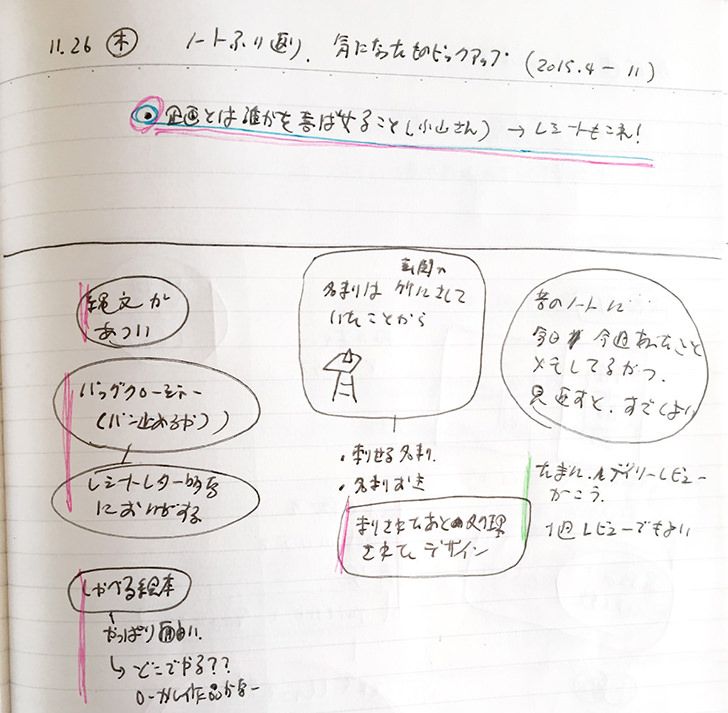 11.26 木 ノートふり返り、気になったものピックアップ (2015.4-11)
企画とは誰かを喜ばせること(小山さん) → レシートもこれ!
縄文が
あつい
バッグクロージャー
(パン止めるやつ)
レシートレター
におわがする
しゃべる絵本
やっぱり面白い
↳ どこでやる??
玄関の
名刺は 竹にさして
いたことから
・刺せる名刺
・名刺おき
刺されたあとの処理
されて デザイン
昔のノートに
今日 今週あったこと
メモしてるやつ、
見返すと、すごくよい
たまに、デイリーレビュー
かこう。
1週レビューでもよい